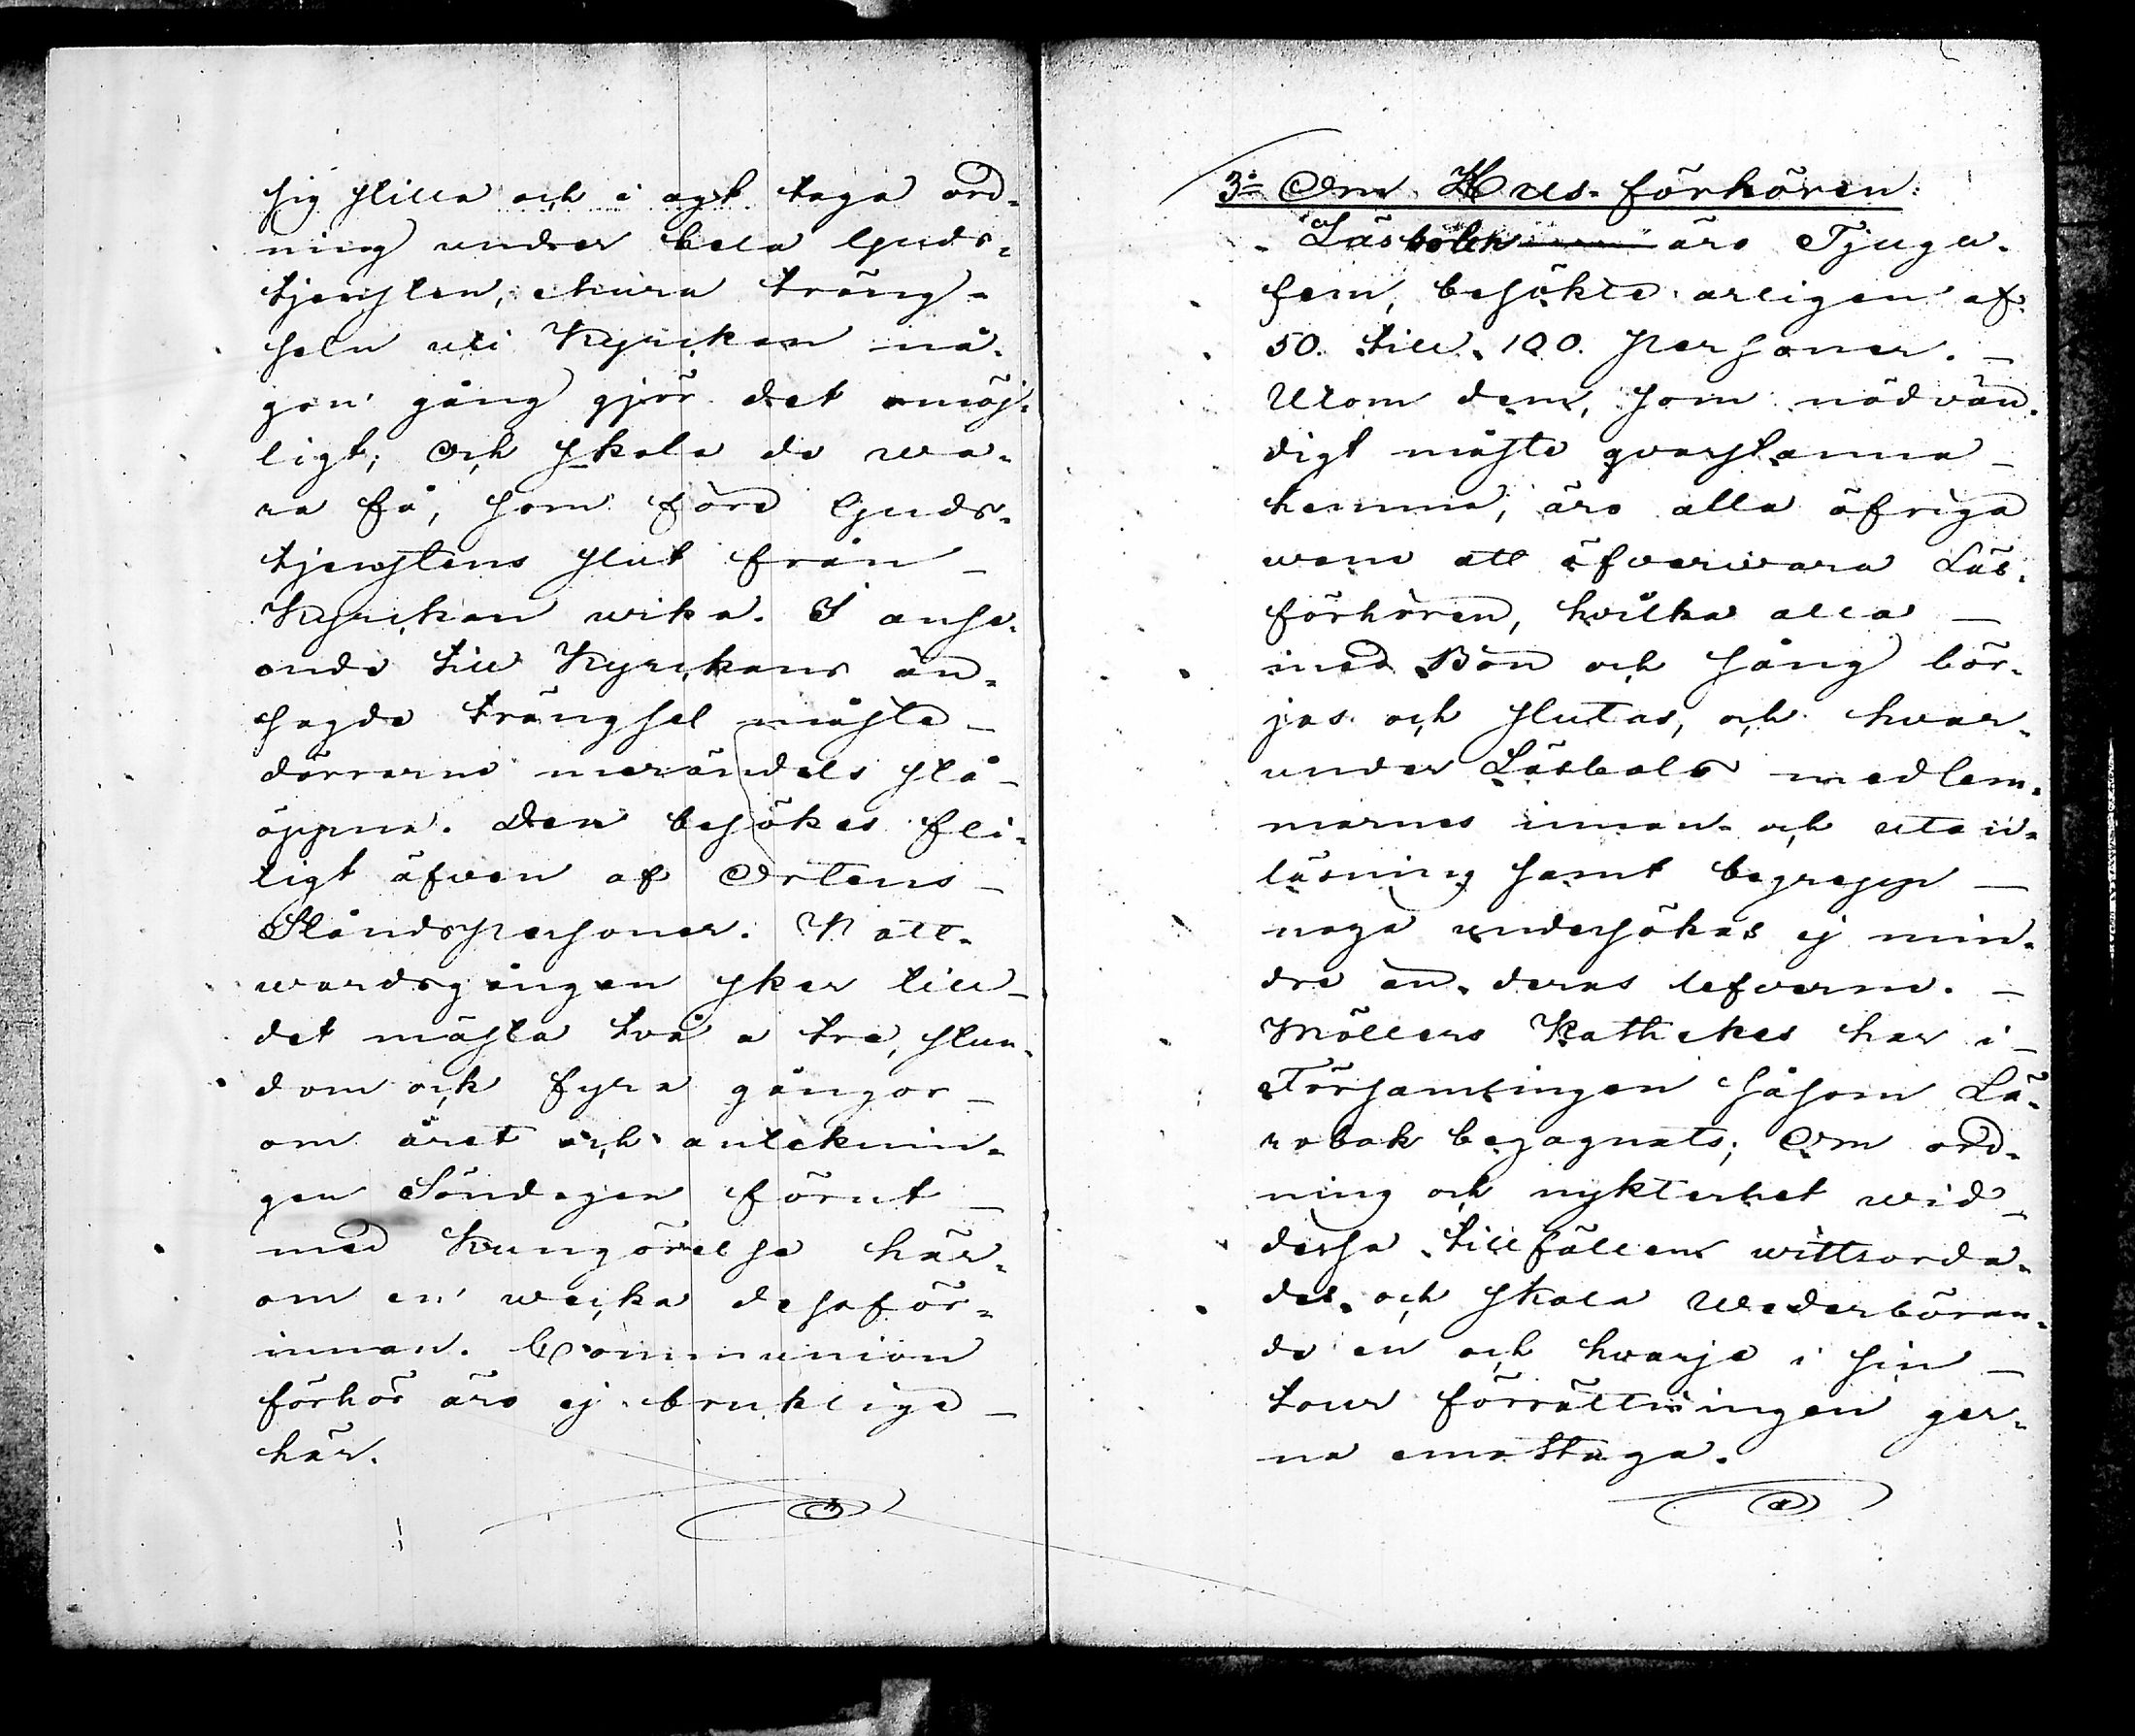 sig stilla och i agt taga ord-
ning under hela Guds-
tjensten, ehuru träng-
seln uti Kyrckan nå-
gon gång gjör det omöj-
ligt; och skola de wa-
ra få, som före Guds-
tjenstens slut från
Kyrckan wika. I anse-
ende till Kyrckans än-
sagde trängsel måste
dörrarne merändels stå
öppna. Den besökes fli-
ligt äfven af Ortens
Ståndspersoner. Natt-
wardsgången sker till
det mästa två a tre, stun-
dom och fyra gångor
om året och anteknin-
gen Söndagen förut
med Kungörelse här-
om en wecka dessför-
innan. Communion
förhör äro ej brukliga
här.
3:o Om Hus-förhören:
Läsbolen äro Tjugu-
fem, besökte årligen af
50. till 100. Personer.
Utom dem, som nödvän-
digt måste qvarstanna
hemma, äro alla öfriga
wane att öfverwara Läs-
förhören, hvilka alla
med Bön och Sång bör-
jas och slutas, och hvar-
under Läsbols medlem-
marnes innan- och utan-
läsning samt begrepp
noga undersökas ej min-
dre än deras lefverne.
Möllers Kathekes har i
Församlingen såsom Lä-
robok begagnats; Om ord-
ning och nykterhet wid
dessa tillfällen wittsorda-
des och skola Wederböran-
de en och hvarje i sin
tour förrättningen ger-
na emottaga.